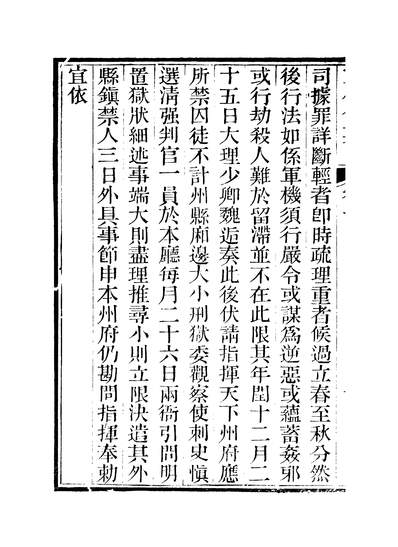 司據罪詳斷輕者卽時疏理重者候過立春至秋分然
後行法如係軍機須行嚴令或謀爲逆惡或蘊蓄姦邪
或行劫殺人難於留滯並不在此限其年閏十二月二
十五日大理少卿魏逅奏此後伏請指揮天下州府應
所禁囚徒不計州縣廂邊大小刑獄委觀察使刺史愼
選清强判官一員於本廳每月二十六日兩衙引問明
置獄狀細述事端大則盡理推尋小則立限決遣其外
縣鎭禁人三日外具事節申本州府仍勘問指揮奉勅
宜依